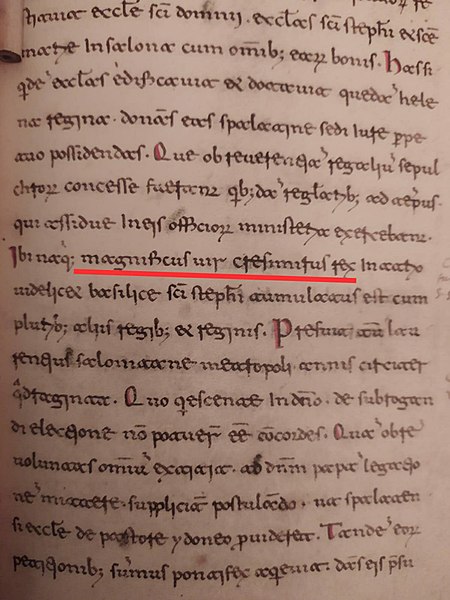 eccl̄e sc̄i domnii . eccl̄as sc̄i steph̄i & sc̄e
marie In salona cum om̄ib; eor̄ bonis . Has si
q̇de eccl̄as edificauit & dotauit queda᷉ hele
na regina . donans eas spalatine sedi iure ꝑpe
tuo possidendas . Que ob reuerentia᷉ regaliu᷉ sepul
chror̄ concesse fuerant q̇b;da᷉ regl̄arib; ad te᷉pus .
qui assidue In eis officior̄ ministeria exercebant .
Ibi na᷉q; magnificus uir cresimirus rex In atrio
uidelicet basilice sc̄i steph̄i tumulatus est cum
plurib; aliis regib; & reginis . Prefuit au᷉ lau
rentius salonitane metropoli annis circiter
q̇draginta . Quo q̇escente In dn̄o . de subrogan
di electione no᷉ potuer̄ ee᷉ co᷉cordes .
ad dn̄m papa᷉ legatio
ne᷉ suppliciter postulando . ut spalaten
si eccl̄e de pastore ydoneo ꝓuideret . Tande᷉ eor̄
petitionib; su᷉mus pontifex acq̇euit . dans eis p̄su